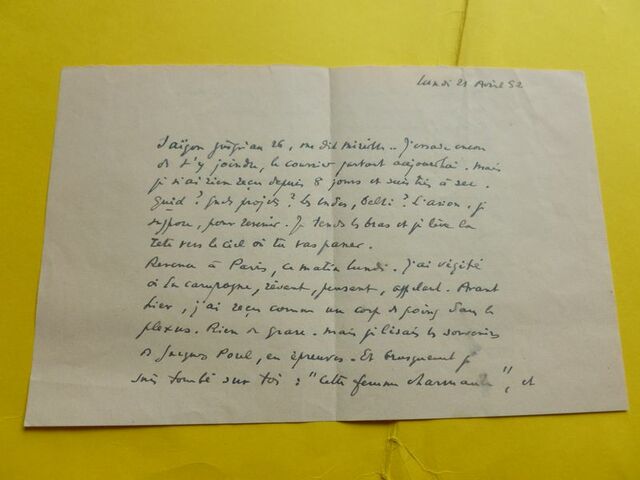 Lundi 21 Avril 52
Saïgon jusqu'au 26, me dit Mireille.. J'essaie encore
de t'y joindre, le courrier partant aujourd'hui. Mais
je n'ai rien reçu depuis 8 jours et suis très à sec.
Quid? Quels projets? Les Indes, Delhi? L'avion, je
suppose, pour revenir. Je tends les bras et je lève la
tête vers le ciel où tu vas passer.
Revenu à Paris, ce matin lundi. J'ai végété
à la campagne, rêvant, pensant, appelant. Avant
hier, j'ai reçu comme un coup de poing dans le
plexus. Rien de grave. Mais je lisais les souvenirs
de Jacques Porel, en épreuves. Et brusquement je
suis tombé sur toi : "Cette femme charmante", et